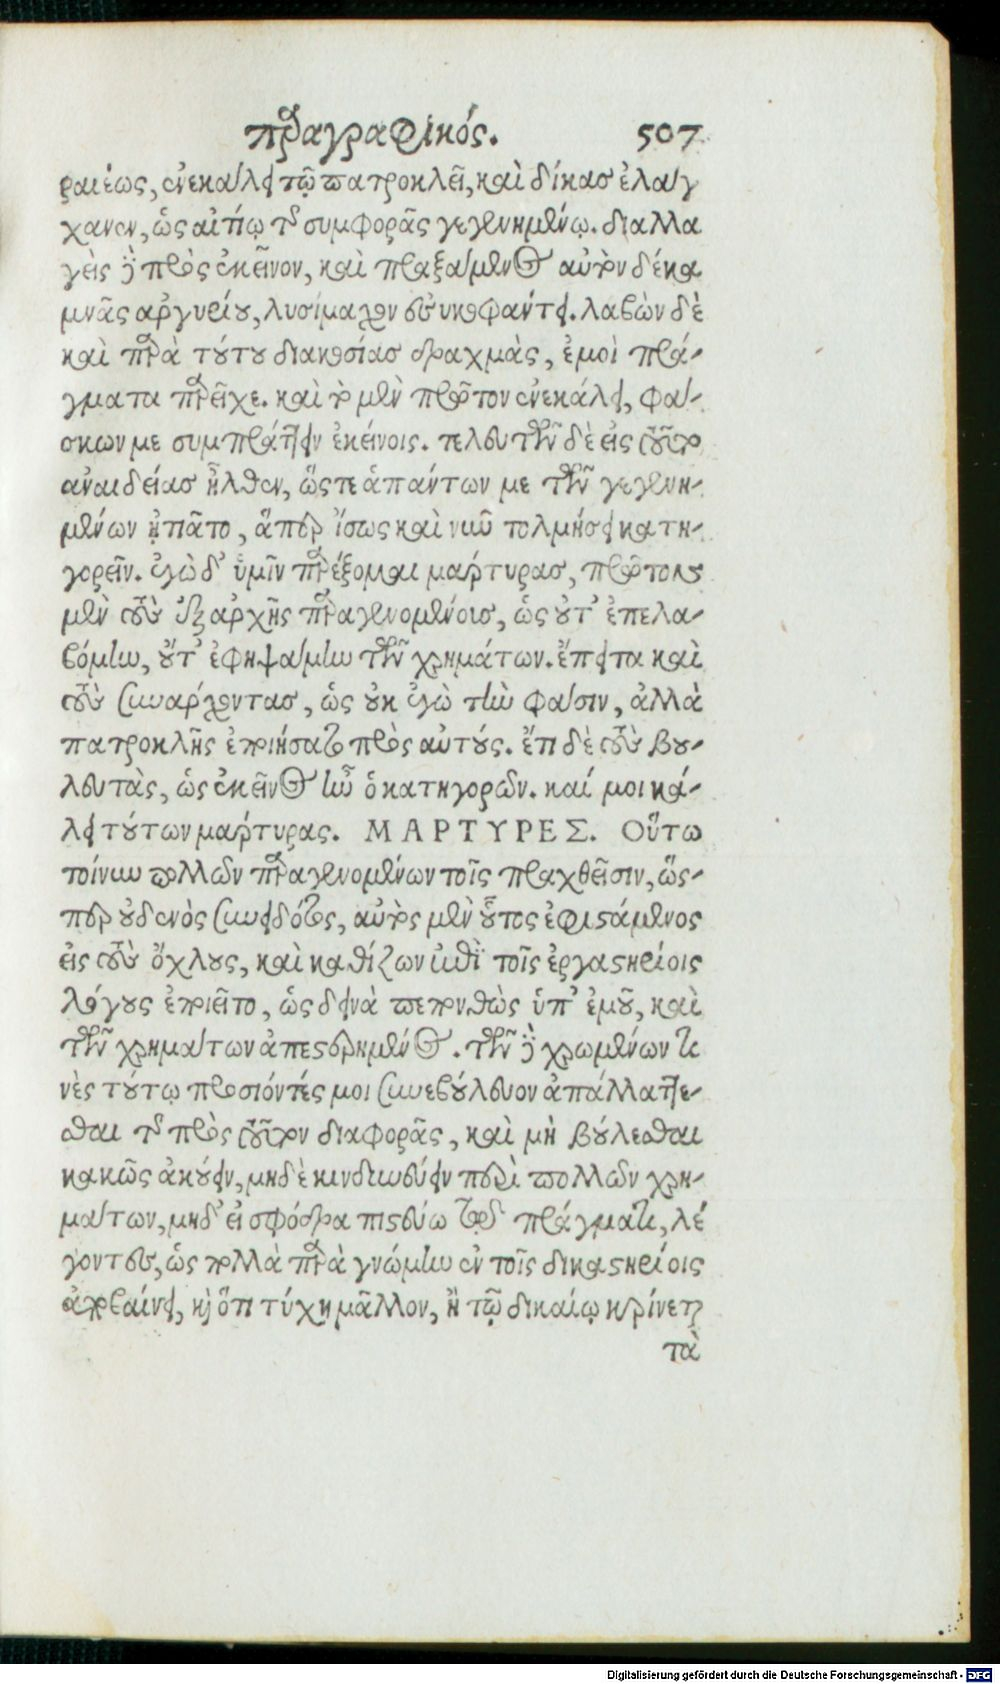 παραγραφικός. 507
ραιέως, ἐνεκάλει τῷ πατροκλεῖ, καὶ δίκας ἐλάγ
χανεν, ὡς αἰτίῳ τῆς συμφορᾶς γεγενημένῳ. διαλλα
γεὶς δὲ πρὸς ἐκεῖνον, καὶ πραξάμενος αὐτὸν δέκα
μνᾶς ἀργυρίου, λυσίμαχον ἐσυκοφάντει. λαβὼν δὲ
καὶ παρὰ τούτου διακοσίας δραχμὰς, ἐμοὶ πρά-
γματα παρεῖχε. καὶ τὸ μὲν πρῶτον ἐνεκάλει, φά-
σκων με συμπράττειν ἐκείνοις. τελευτῶν δὲ εἰς τοῦτο
ἀναιδείας ἦλθεν, ὥστε ἁπάντων με τῶν γεγενη-
μένων ᾐτιᾶτο, ἅπερ ἴσως καὶ νῦν τολμήσει κατη-
γορεῖν. ἐγὼ δ' ὑμῖν παρέξομαι μάρτυρας, πρῶτον
μὲν τοὺς ἐξ ἀρχῆς παραγενομένους, ὡς οὔτ' ἐπελα-
βόμην, οὔτ' ἐφηψάμην τῶν χρημάτων. ἔπειτα καὶ
τοὺς συνάρχοντας, ὡς οὐκ ἐγὼ τὴν φάσιν, ἀλλὰ
πατροκλῆς ἐποιήσατο πρὸς αὐτούς. ἔτι δὲ τοὺς βου-
λευτὰς, ὡς ἐκεῖνος ἦν ὁ κατηγορῶν. καί μοι κά-
λει τούτων μάρτυρας. ΜΑΡΤΥΡΕΣ. Οὕτω
τοίνυν πολλῶν παραγενομένων τοῖς πραχθεῖσιν, ὥς-
περ οὐδενὸς συνειδότος, αὐτὸς μὲν οὗτος ἐφιστάμενος
εἰς τοὺς ὄχλους, καὶ καθίζων ἐπὶ τοῖς ἐργαστηρίοις
λόγους ἐποιεῖτο, ὡς δεινὰ πεπονθὼς ὑπ' ἐμοῦ, καὶ
τῶν χρημάτων ἀπεστερημένος. τῶν δὲ χρωμένων τι
νὲς τούτῳ προσιόντές μοι συνεβούλευον ἀπαλλάττε-
σθαι τῆς πρὸς τοῦτον διαφορᾶς, καὶ μὴ βούλεσθαι
κακῶς ἀκούειν, μηδὲ κινδυνεύειν περὶ πολλῶν χρη-
μάτων, μηδ' εἰ σφόδρα πιστεύω τῷ πράγματι, λέ
γοντες, ὡς πολλὰ παρὰ γνώμην ἐν τοῖς δικαστηρίοις
ἀποβαίνει, καὶ ὅτι τύχῃ μᾶλλον, ἢ τῷ δικαίῳ κρίνεται
τὰ
Digitalisierung gefördert durch die Deutsche Forschungsgemeinschaft - DFG